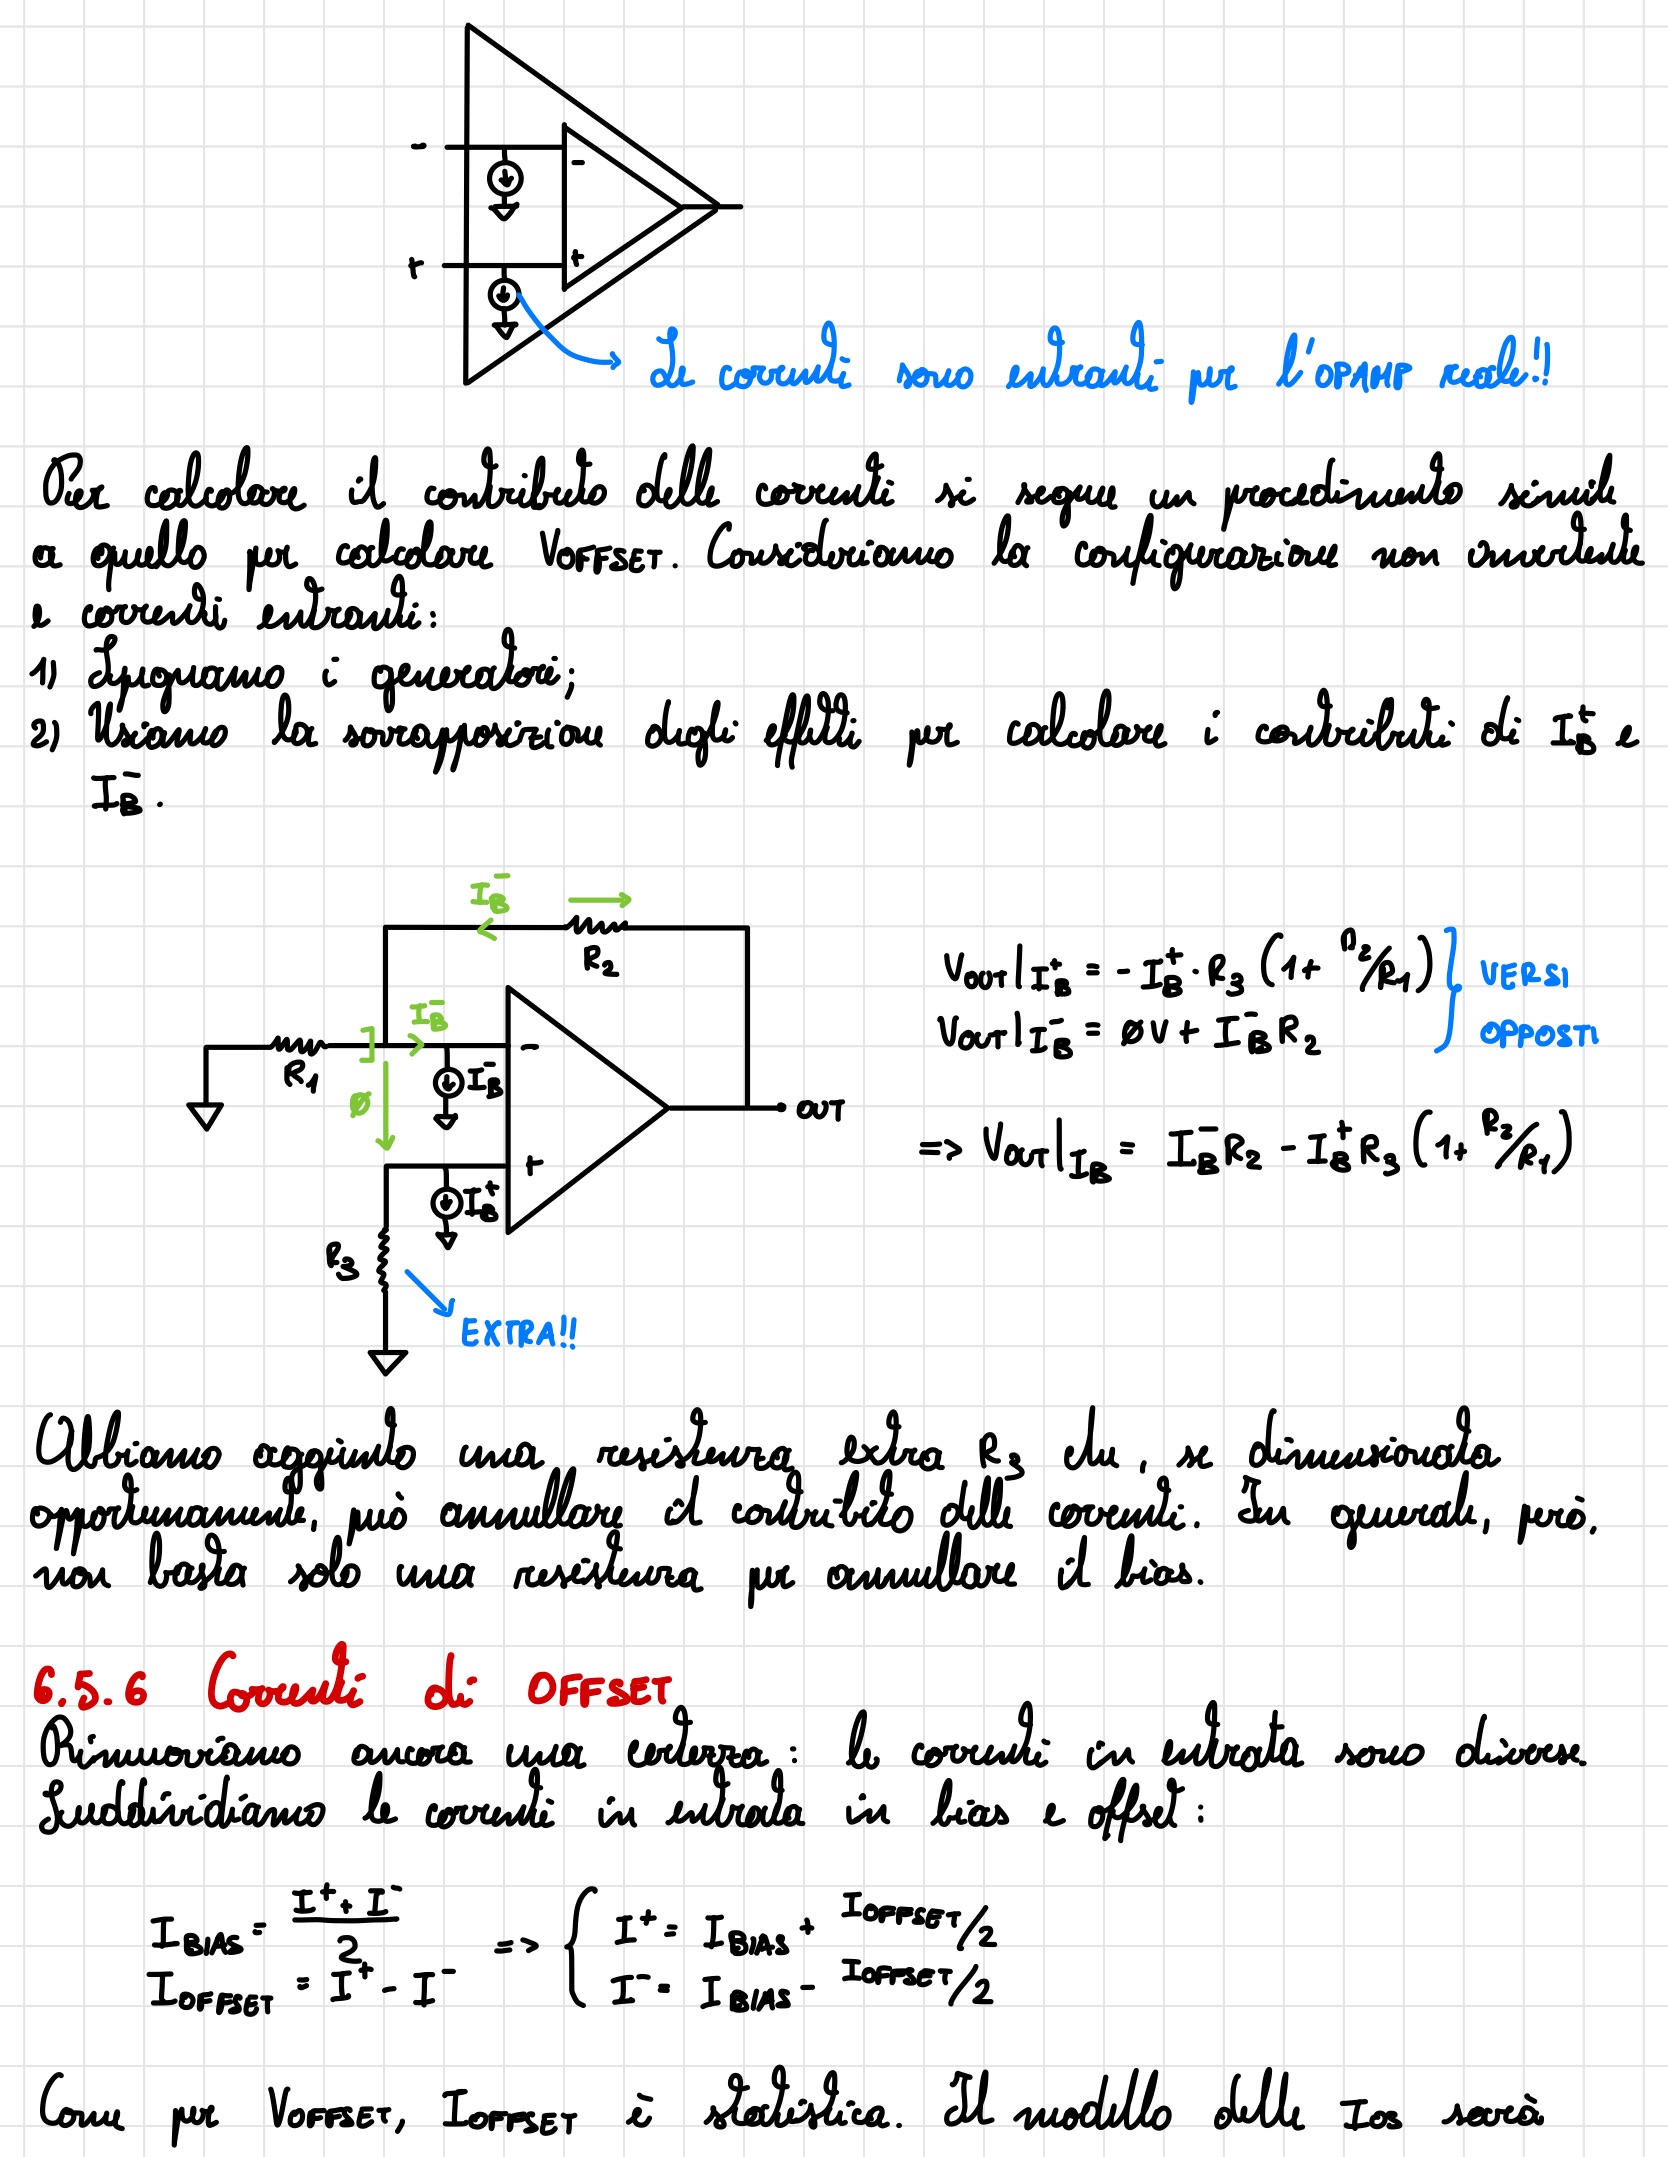 -
-
+
+
Le correnti sono entranti per l'OPAMP reale!!
Per calcolare il contributo delle correnti si segue un procedimento simile
a quello per calcolare VOFFSET. Consideriamo la configurazione non invertente
e correnti entranti:
1) Spegniamo i generatori;
2) Usiamo la sovrapposizione degli effetti per calcolare i contributi di I_B^+ e
I_B^-.
I_B^-
R2
I_B^-
R1
-
I_B^-
Ø
OUT
+
I_B^+
R3
EXTRA!!
V_OUT|I_B^+ = - I_B^+ · R3 (1+ R2/R1)
V_OUT|I_B^- = ØV + I_B^- R2
VERSI
OPPOSTI
=> V_OUT|I_B = I_B^- R2 - I_B^+ R3 (1+ R2/R1)
Abbiamo aggiunto una resistenza extra R3 che, se dimensionata
opportunamente, può annullare il contribito delle correnti. In generale, però,
non basta solo una resistenza per annullare il bias.
6.5.6 Correnti di OFFSET
Rimuoviamo ancora una certezza: le correnti in entrata sono diverse.
Suddividiamo le correnti in entrata in bias e offset:
I_BIAS = (I^+ + I^-)/2 => { I^+ = I_BIAS + I_OFFSET/2
I_OFFSET = I^+ - I^- I^- = I_BIAS - I_OFFSET/2
Come per VOFFSET, IOFFSET è statistica. Il modello delle IOS sarà